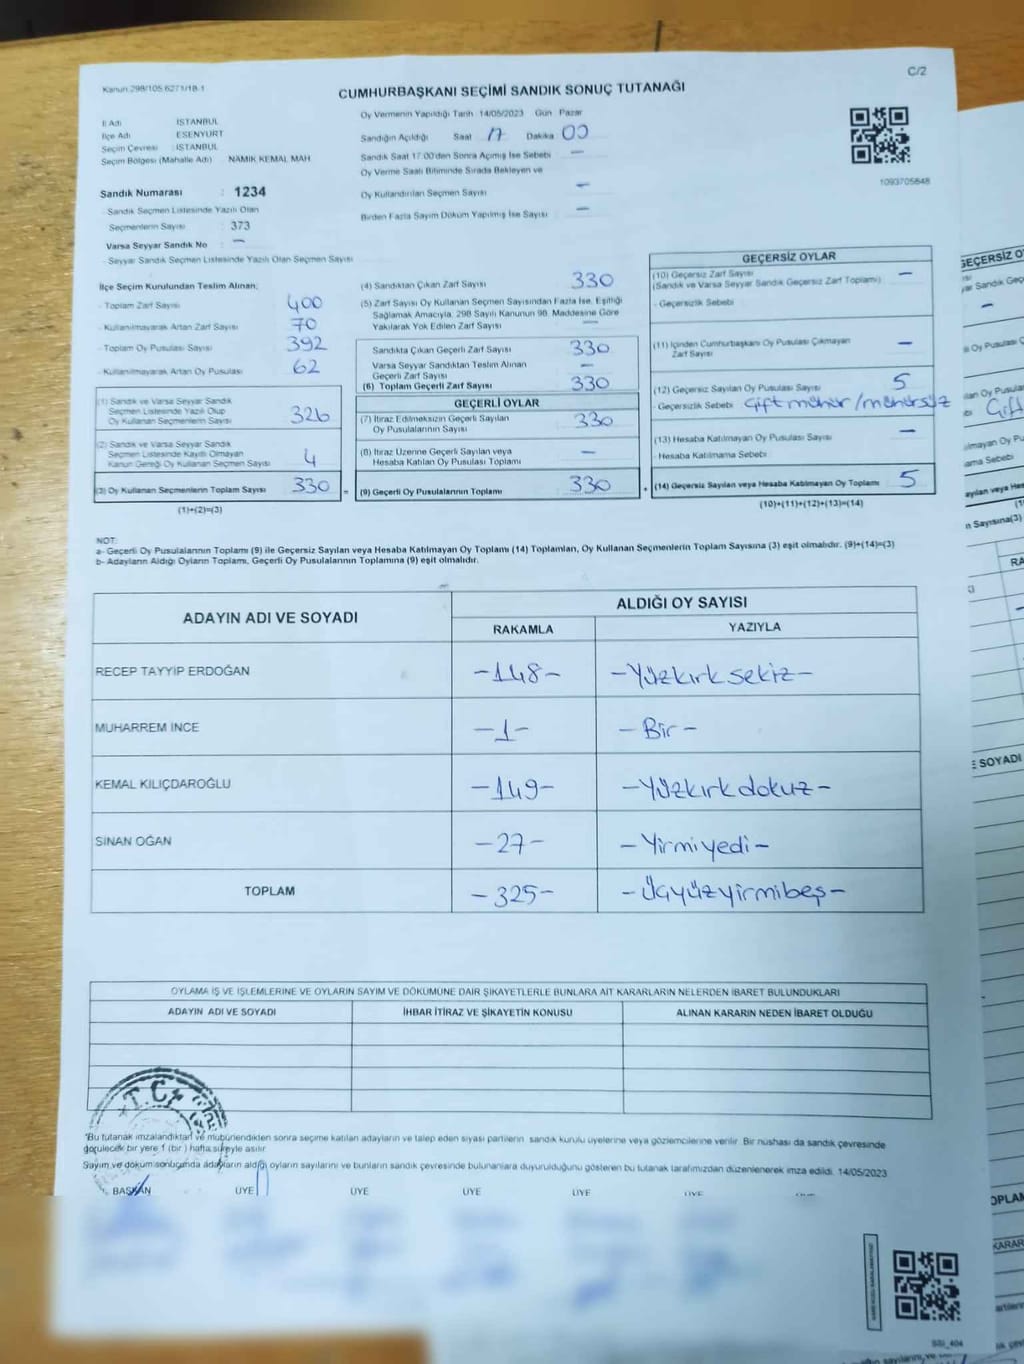 C/2
Kanun 298/105 6271/18-1
CUMHURBAŞKANI SEÇİMİ SANDIK SONUÇ TUTANAĞI
İl Adı İSTANBUL
İlçe Adı ESENYURT
Seçim Çevresi : İSTANBUL
Seçim Bölgesi (Mahalle Adı) NAMIK KEMAL MAH
Sandık Numarası : 1234
- Sandık Seçmen Listesinde Yazılı Olan
Seçmenlerin Sayısı : 373
Varsa Seyyar Sandık No : -
- Seyyar Sandık Seçmen Listesinde Yazılı Olan Seçmen Sayısı
Oy Vermenin Yapıldığı Tarih 14/05/2023 Gün Pazar
Sandığın Açıldığı Saat 17 Dakika 00
Sandık Saat 17:00'den Sonra Açılmış İse Sebebi -
Oy Verme Saati Bitiminde Sırada Bekleyen ve
Oy Kullandırılan Seçmen Sayısı -
Birden Fazla Sayım Döküm Yapılmış İse Sayısı -
1093705848
İlçe Seçim Kurulundan Teslim Alınan;
- Toplam Zarf Sayısı 400
- Kullanılmayarak Artan Zarf Sayısı 70
- Toplam Oy Pusulası Sayısı 392
- Kullanılmayarak Artan Oy Pusulası 62
(1) Sandık ve Varsa Seyyar Sandık
Seçmen Listesinde Yazılı Olup
Oy Kullanan Seçmenlerin Sayısı 326
(2) Sandık ve Varsa Seyyar Sandık
Seçmen Listesinde Kayıtlı Olmayan
Kanun Gereği Oy Kullanan Seçmen Sayısı 4
(3) Oy Kullanan Seçmenlerin Toplam Sayısı 330
(1)+(2)=(3)
(4) Sandıktan Çıkan Zarf Sayısı 330
(5) Zarf Sayısı Oy Kullanan Seçmen Sayısından Fazla İse, Eşitliği
Sağlamak Amacıyla, 298 Sayılı Kanunun 98. Maddesine Göre
Yakılarak Yok Edilen Zarf Sayısı -
Sandıkta Çıkan Geçerli Zarf Sayısı 330
Varsa Seyyar Sandıktan Teslim Alınan
Geçerli Zarf Sayısı -
(6) Toplam Geçerli Zarf Sayısı 330
GEÇERLİ OYLAR
(7) İtiraz Edilmeksizin Geçerli Sayılan
Oy Pusulalarının Sayısı 330
(8) İtiraz Üzerine Geçerli Sayılan veya
Hesaba Katılan Oy Pusulası Toplamı -
= (9) Geçerli Oy Pusulalarının Toplamı 330 +
GEÇERSİZ OYLAR
(10) Geçersiz Zarf Sayısı -
(Sandık ve Varsa Seyyar Sandık Geçersiz Zarf Toplamı)
- Geçersizlik Sebebi
(11) İçinden Cumhurbaşkanı Oy Pusulası Çıkmayan -
Zarf Sayısı
(12) Geçersiz Sayılan Oy Pusulası Sayısı 5
- Geçersizlik Sebebi Çift mühür / mühürsüz
(13) Hesaba Katılmayan Oy Pusulası Sayısı -
- Hesaba Katılmama Sebebi
(14) Geçersiz Sayılan veya Hesaba Katılmayan Oy Toplamı 5
(10)+(11)+(12)+(13)=(14)
NOT:
a- Geçerli Oy Pusulalarının Toplamı (9) ile Geçersiz Sayılan veya Hesaba Katılmayan Oy Toplamı (14) Toplamları, Oy Kullanan Seçmenlerin Toplam Sayısına (3) eşit olmalıdır. (9)+(14)=(3)
b- Adayların Aldığı Oyların Toplamı, Geçerli Oy Pusulalarının Toplamına (9) eşit olmalıdır.
ADAYIN ADI VE SOYADI
ALDIĞI OY SAYISI
RAKAMLA YAZIYLA
RECEP TAYYİP ERDOĞAN -148- -Yüzkırk sekiz-
MUHARREM İNCE -1- -Bir-
KEMAL KILIÇDAROĞLU -149- -Yüzkırk dokuz-
SİNAN OĞAN -27- -Yirmiyedi-
TOPLAM -325- -Üçyüzyirmibeş-
OYLAMA İŞ VE İŞLEMLERİNE VE OYLARIN SAYIM VE DÖKÜMÜNE DAİR ŞİKAYETLERLE BUNLARA AİT KARARLARIN NELERDEN İBARET BULUNDUKLARI
ADAYIN ADI VE SOYADI İHBAR İTİRAZ VE ŞİKAYETİN KONUSU ALINAN KARARIN NEDEN İBARET OLDUĞU
T.C.
*Bu tutanak imzalandıktan ve mühürlendikten sonra seçime katılan adayların ve talep eden siyasi partilerin sandık kurulu üyelerine veya gözlemcilerine verilir. Bir nüshası da sandık çevresinde
görülecek bir yere 1 (bir) hafta süreyle asılır
Sayım ve döküm sonucunda adayların aldığı oyların sayılarını ve bunların sandık çevresinde bulunanlara duyurulduğunu gösteren bu tutanak tarafımızdan düzenlenerek imza edildi. 14/05/2023
BAŞKAN ÜYE ÜYE ÜYE ÜYE ÜYE